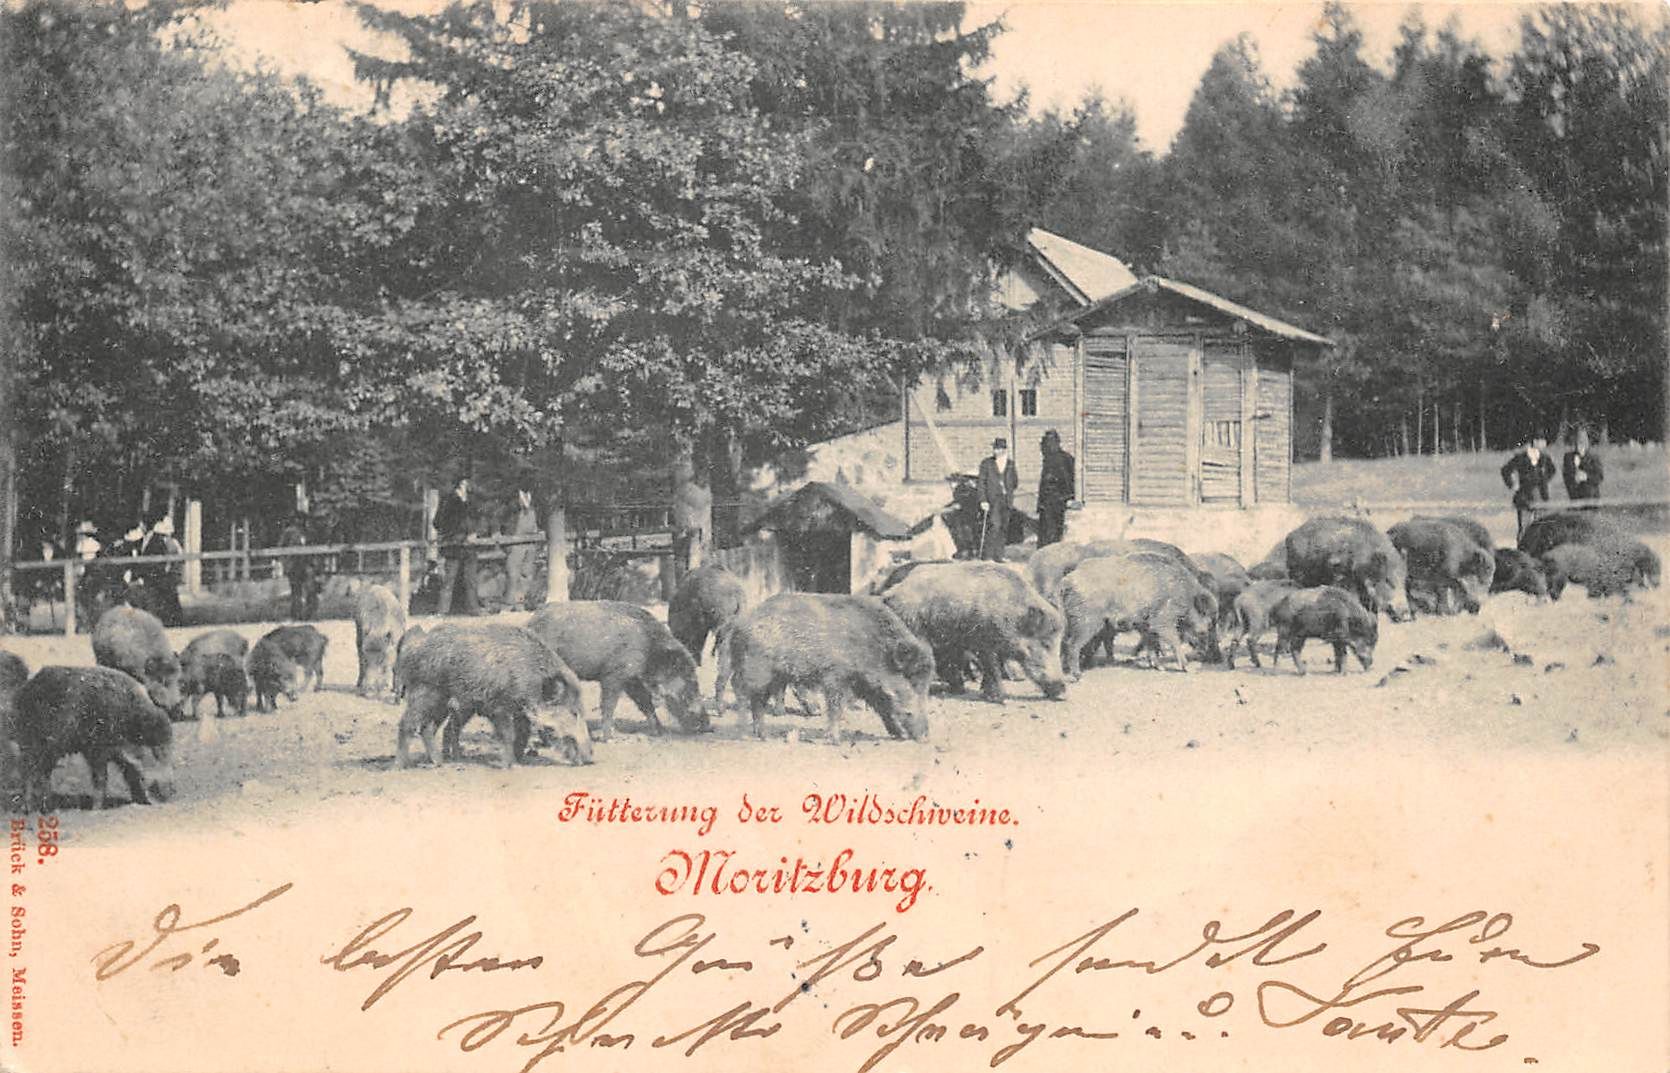 Fütterung der Wildschweine.
Moritzburg.
Die besten Grüße sendet Euer
Schwager u. Tante.
258.
Brück & Sohn, Meissen.